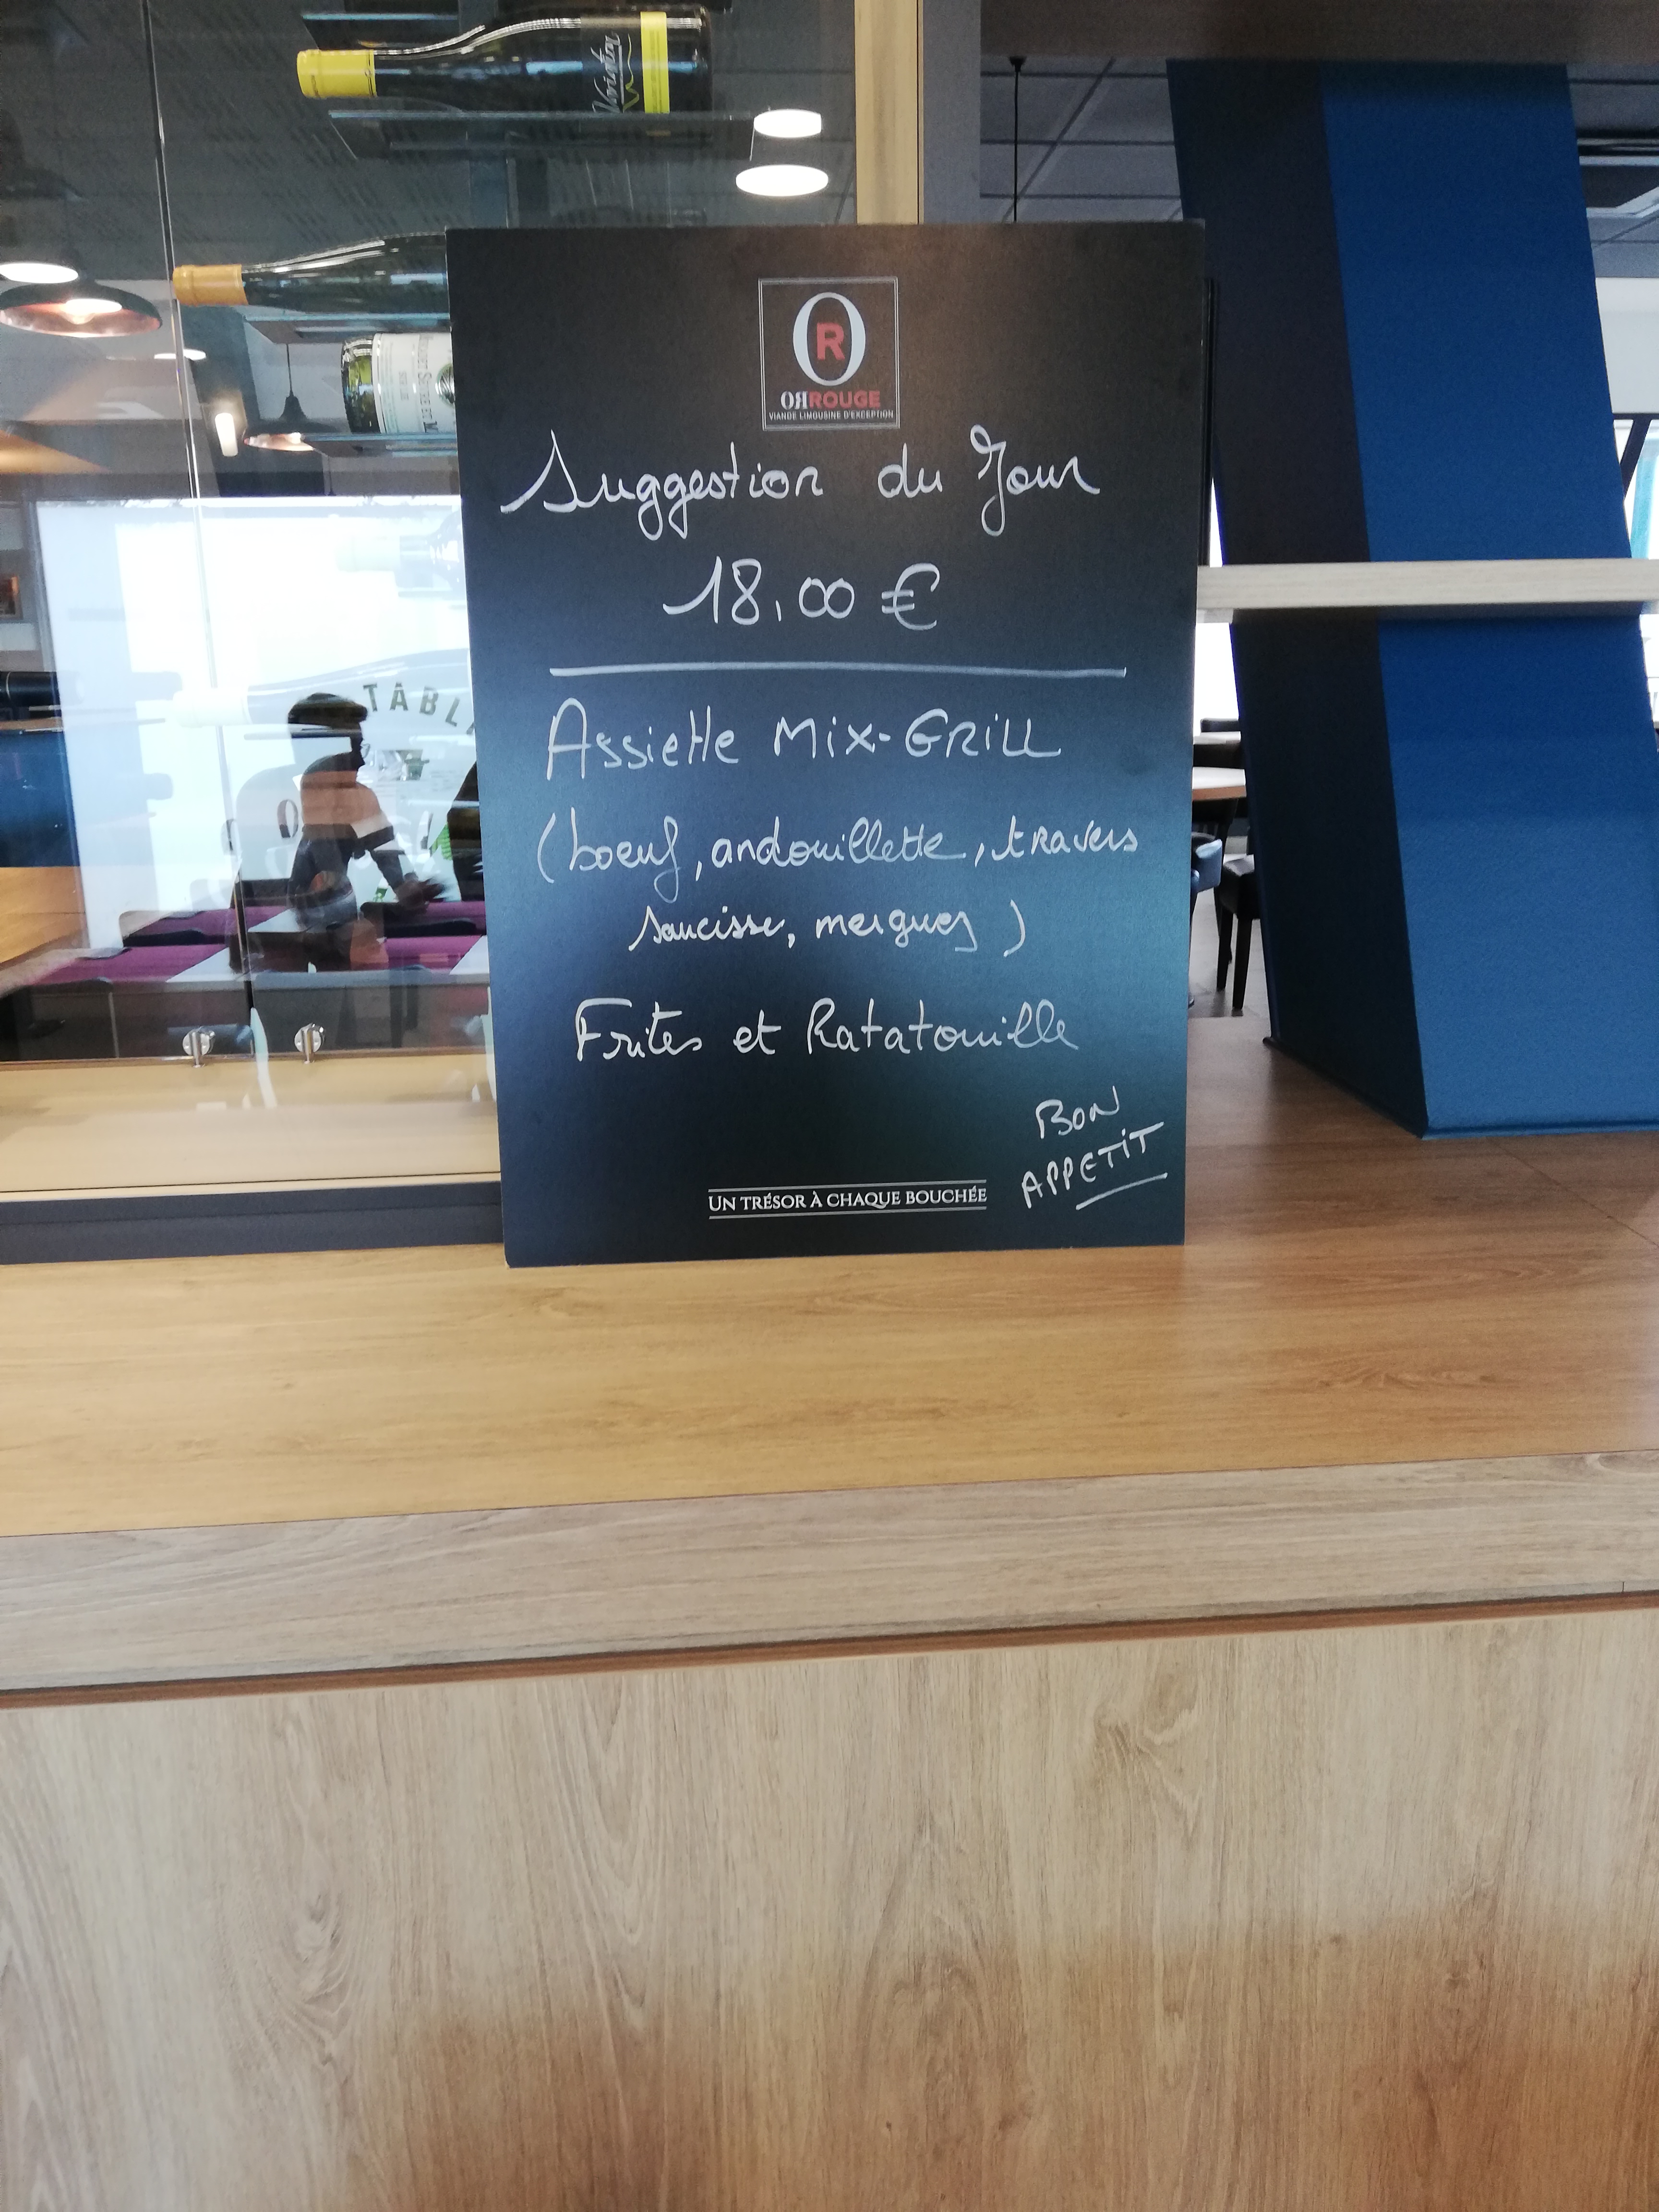 OR
ORROUGE
VIANDE LIMOUSINE D'EXCEPTION
Suggestion du Jour
18,00 €
Assiette Mix-GRILL
(boeuf, andouillette, travers
saucisse, merguez)
Frites et Ratatouille
BON
APPETIT
UN TRÉSOR À CHAQUE BOUCHÉE
TABL